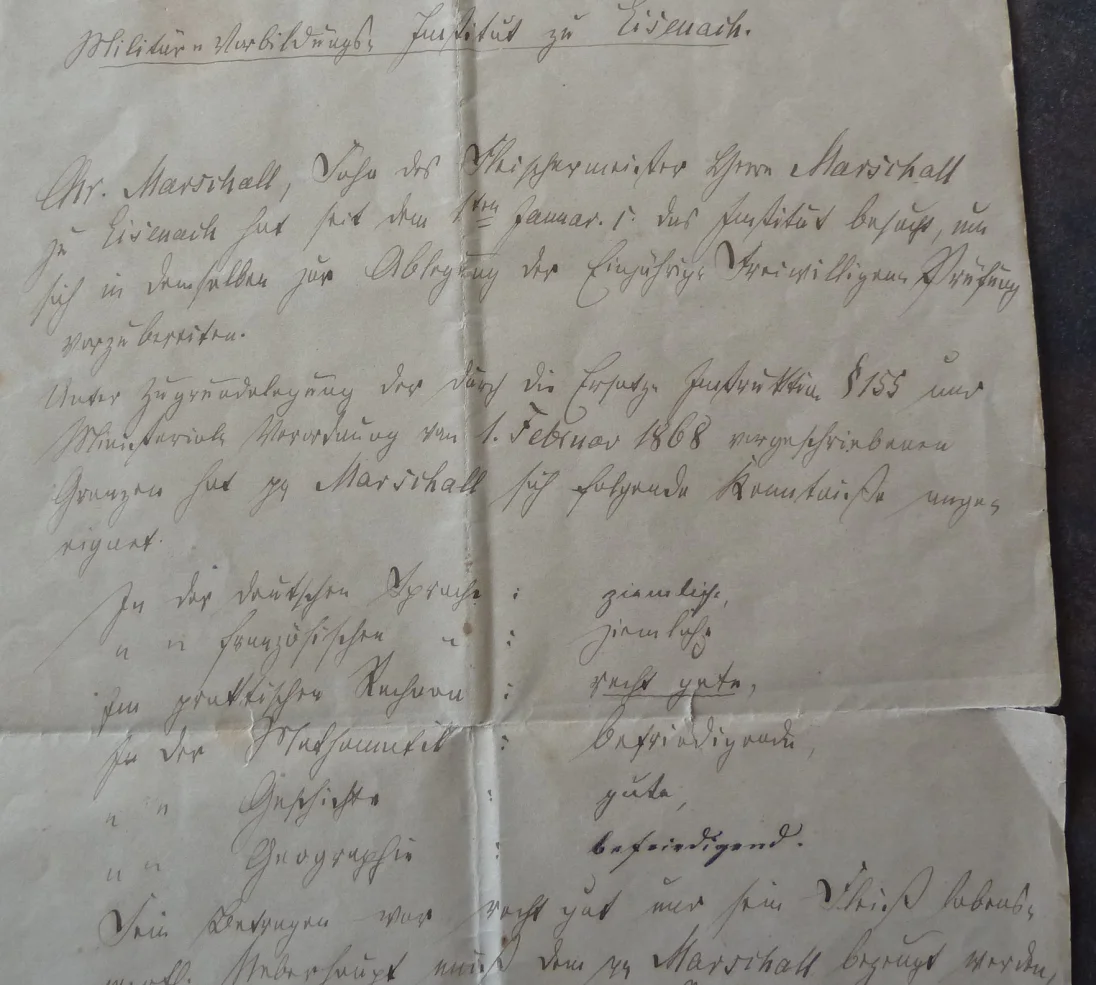 Militär-Vorbildungs-Institut zu Eisenach.
Chr. Marschall, Sohn des Fleischermeister Herrn Marschall
zu Eisenach hat seit dem 1ten Januar. c. das Institut besucht, um
sich in demselben zur Ablegung der Einjährig-Freiwilligen-Prüfung
vorzubereiten.
Unter Zugrundelegung der durch die Ersatz-Instruktion § 155 und
Ministerial-Verordnung vom 1. Februar 1868 vorgeschriebenen
Grenzen hat pp Marschall sich folgende Kenntniße ange-
eignet.
In der deutschen Sprache : ziemliche,
" " französischen " : ziemliche
Im praktischen Rechnen : recht gute,
In der Mathematik : befriedigende,
" " Geschichte : gute,
" " Geographie : befriedigend.
Sein Betragen war recht gut und sein Fleiß lobens-
werth. Ueberhaupt muß dem pp Marschall bezeugt werden,